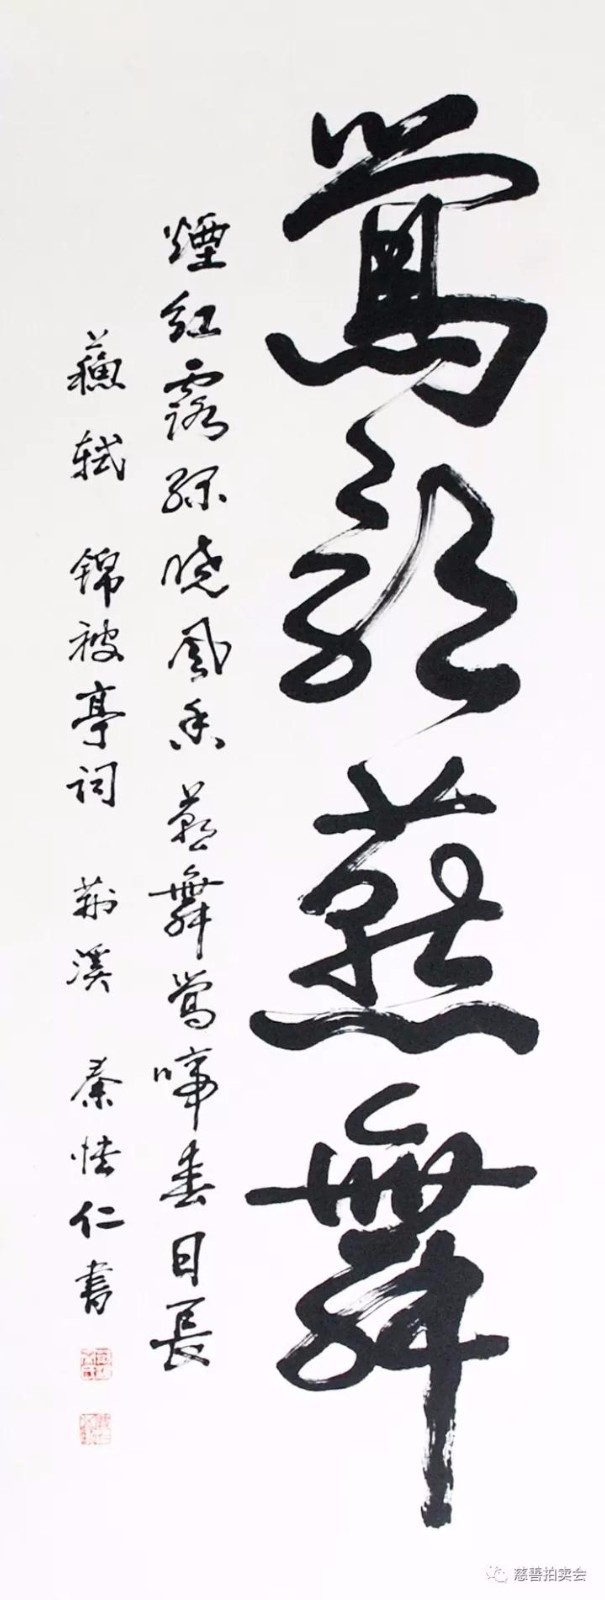 鶯歌燕舞
煙紅露綠曉風香燕舞鶯啼春日長
蘇軾 錦被亭詞 荊溪 秦 仁書
慈善拍卖会